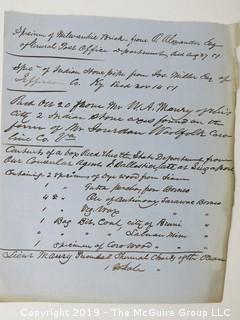 Specimen of Milwaukie Brick from A. Alexander Esq
of General Post Office Department Aug 27 51
Spec of Indian Stone pipe from Geo Miller Esq of
Jefferson Co. Ky Recd Nov 14 51
Recd Oct 20 from Mr W. A. Maury of this
city 2 Indian Stone axes found on the
farm of Mr Jourdan Woolfolk Caro
line Co. Va
Contents of a box Recd thro the State Department from
our Consular Agent J. Balestier
Containing 2 specimens of dye wood from Siam
1 " Gutta percha, from Borneo
4 " Ore of Antimony Sarawac Borneo
1 " Wood "
1 Bag Bit. Coal, city of Bruni "
1 " " Labuan Mine "
1 specimen of Coro Wood "
Lieut Maury Presented Thermal Charts of the Ocean
Copyright 2019 - The McGuire Group